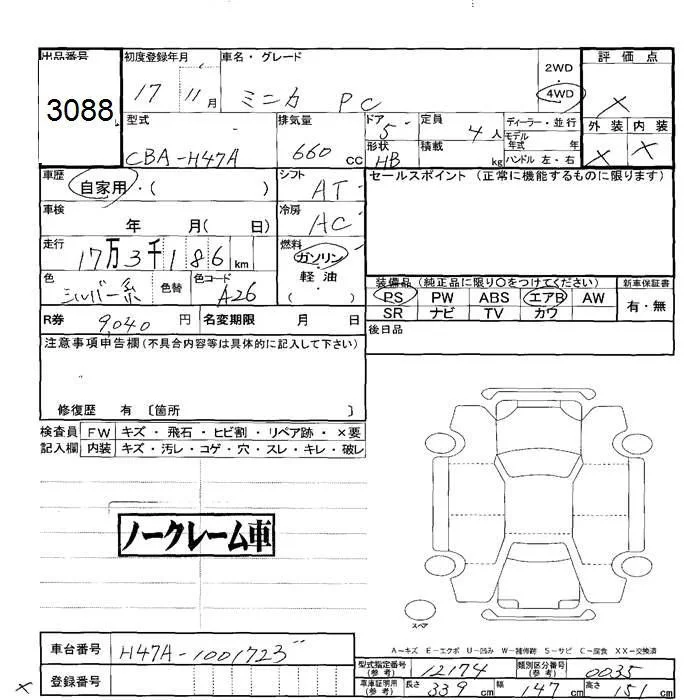 出品番号 初度登録年月 車名・グレード 2WD 評価点
3088 17 11月 ミニカ PC 4WD ×
型式 排気量 ドア 5 定員 4人 ディーラー・並行 外装 内装
CBA-H47A 660 CC 形状 HB 積載 kg モデル年式 年 × ×
ハンドル 左・右
車歴 自家用・( ) シフト AT セールスポイント (正常に機能するものに限ります)
車検 年 月( 日) 冷房 AC
走行 17万3千186km 燃料 ガソリン・軽油 ( )
色 シルバー系 色替 色コード A26 装備品 (純正品に限り○をつけてください) 新車保証書
PS PW ABS エアB AW 有・無
SR ナビ TV カワ
R券 9,040 円 名変期限 月 日 後日品
注意事項申告欄(不具合内容等は具体的に記入して下さい)
修復歴 有 〔箇所 〕
検査員 FW キズ・飛石・ヒビ割・リペア跡・×要
記入欄 内装 キズ・汚レ・コゲ・穴・スレ・キレ・破レ
ノークレーム車
スペア
A-キズ E-エクボ U-凹み W-補修跡 S-サビ C-腐食 XX-交換済
車台番号 H47A-1001723
型式指定番号(参考) 12174 類別区分番号(参考) 0035
登録番号
車庫証明用(参考) 長さ 339cm 幅 147cm 高さ 151cm
×